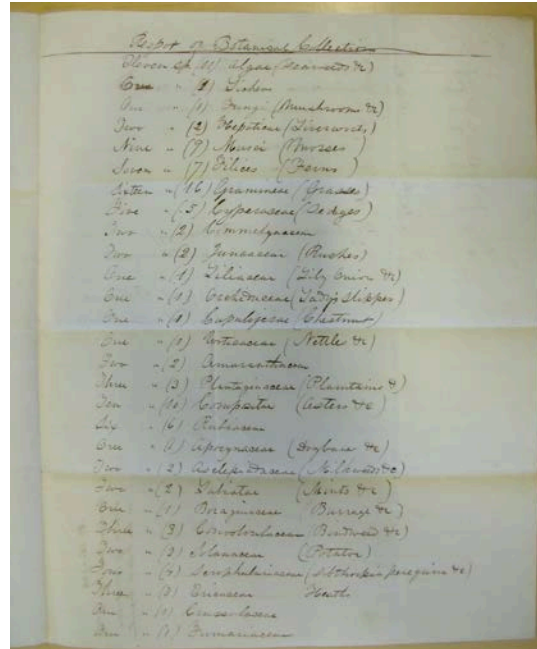 Report on Botanical Collection
Eleven sp. (11) Algae (Seaweeds &c)
One " (1) Lichen
One " (1) Fungi (Mushrooms &c)
Two " (2) Hepaticae (Liverworts)
Nine " (9) Musci (Mosses)
Seven " (7) Filices (Ferns)
Sixteen " (16) Gramineae (Grasses)
Five " (5) Cyperaceae (Sedges)
Two " (2) Commelynaceae
Two " (2) Juncaceae (Rushes)
One " (1) Liliaceae (Lily Onion &c)
One " (1) Orchidaceae (Lady's Slipper)
One " (1) Cupuliferae (Chestnut)
One " (1) Urticaceae (Nettle &c)
Two " (2) Amaranthaceae
Three " (3) Plantaginaceae (Plantains &)
Ten " (10) Compositae (Asters &c)
Six " (6) Rubiaceae
One " (1) Apocynaceae (Dogbane &c)
Two " (2) Asclepidaceae (Milkweeds &c)
Two " (2) Labiatae (Mints &c)
One " (1) Boraginaceae (Burrage &c)
Three " (3) Convolvulaceae (Bindweed &c)
Two " (2) Solanaceae (Potato)
Four " (4) Scrophulariaceae (Sibthorpia peregrina &c)
Three " (3) Ericaceae Heath
One " (1) Crassulaceae
One " (1) Fumariaceae